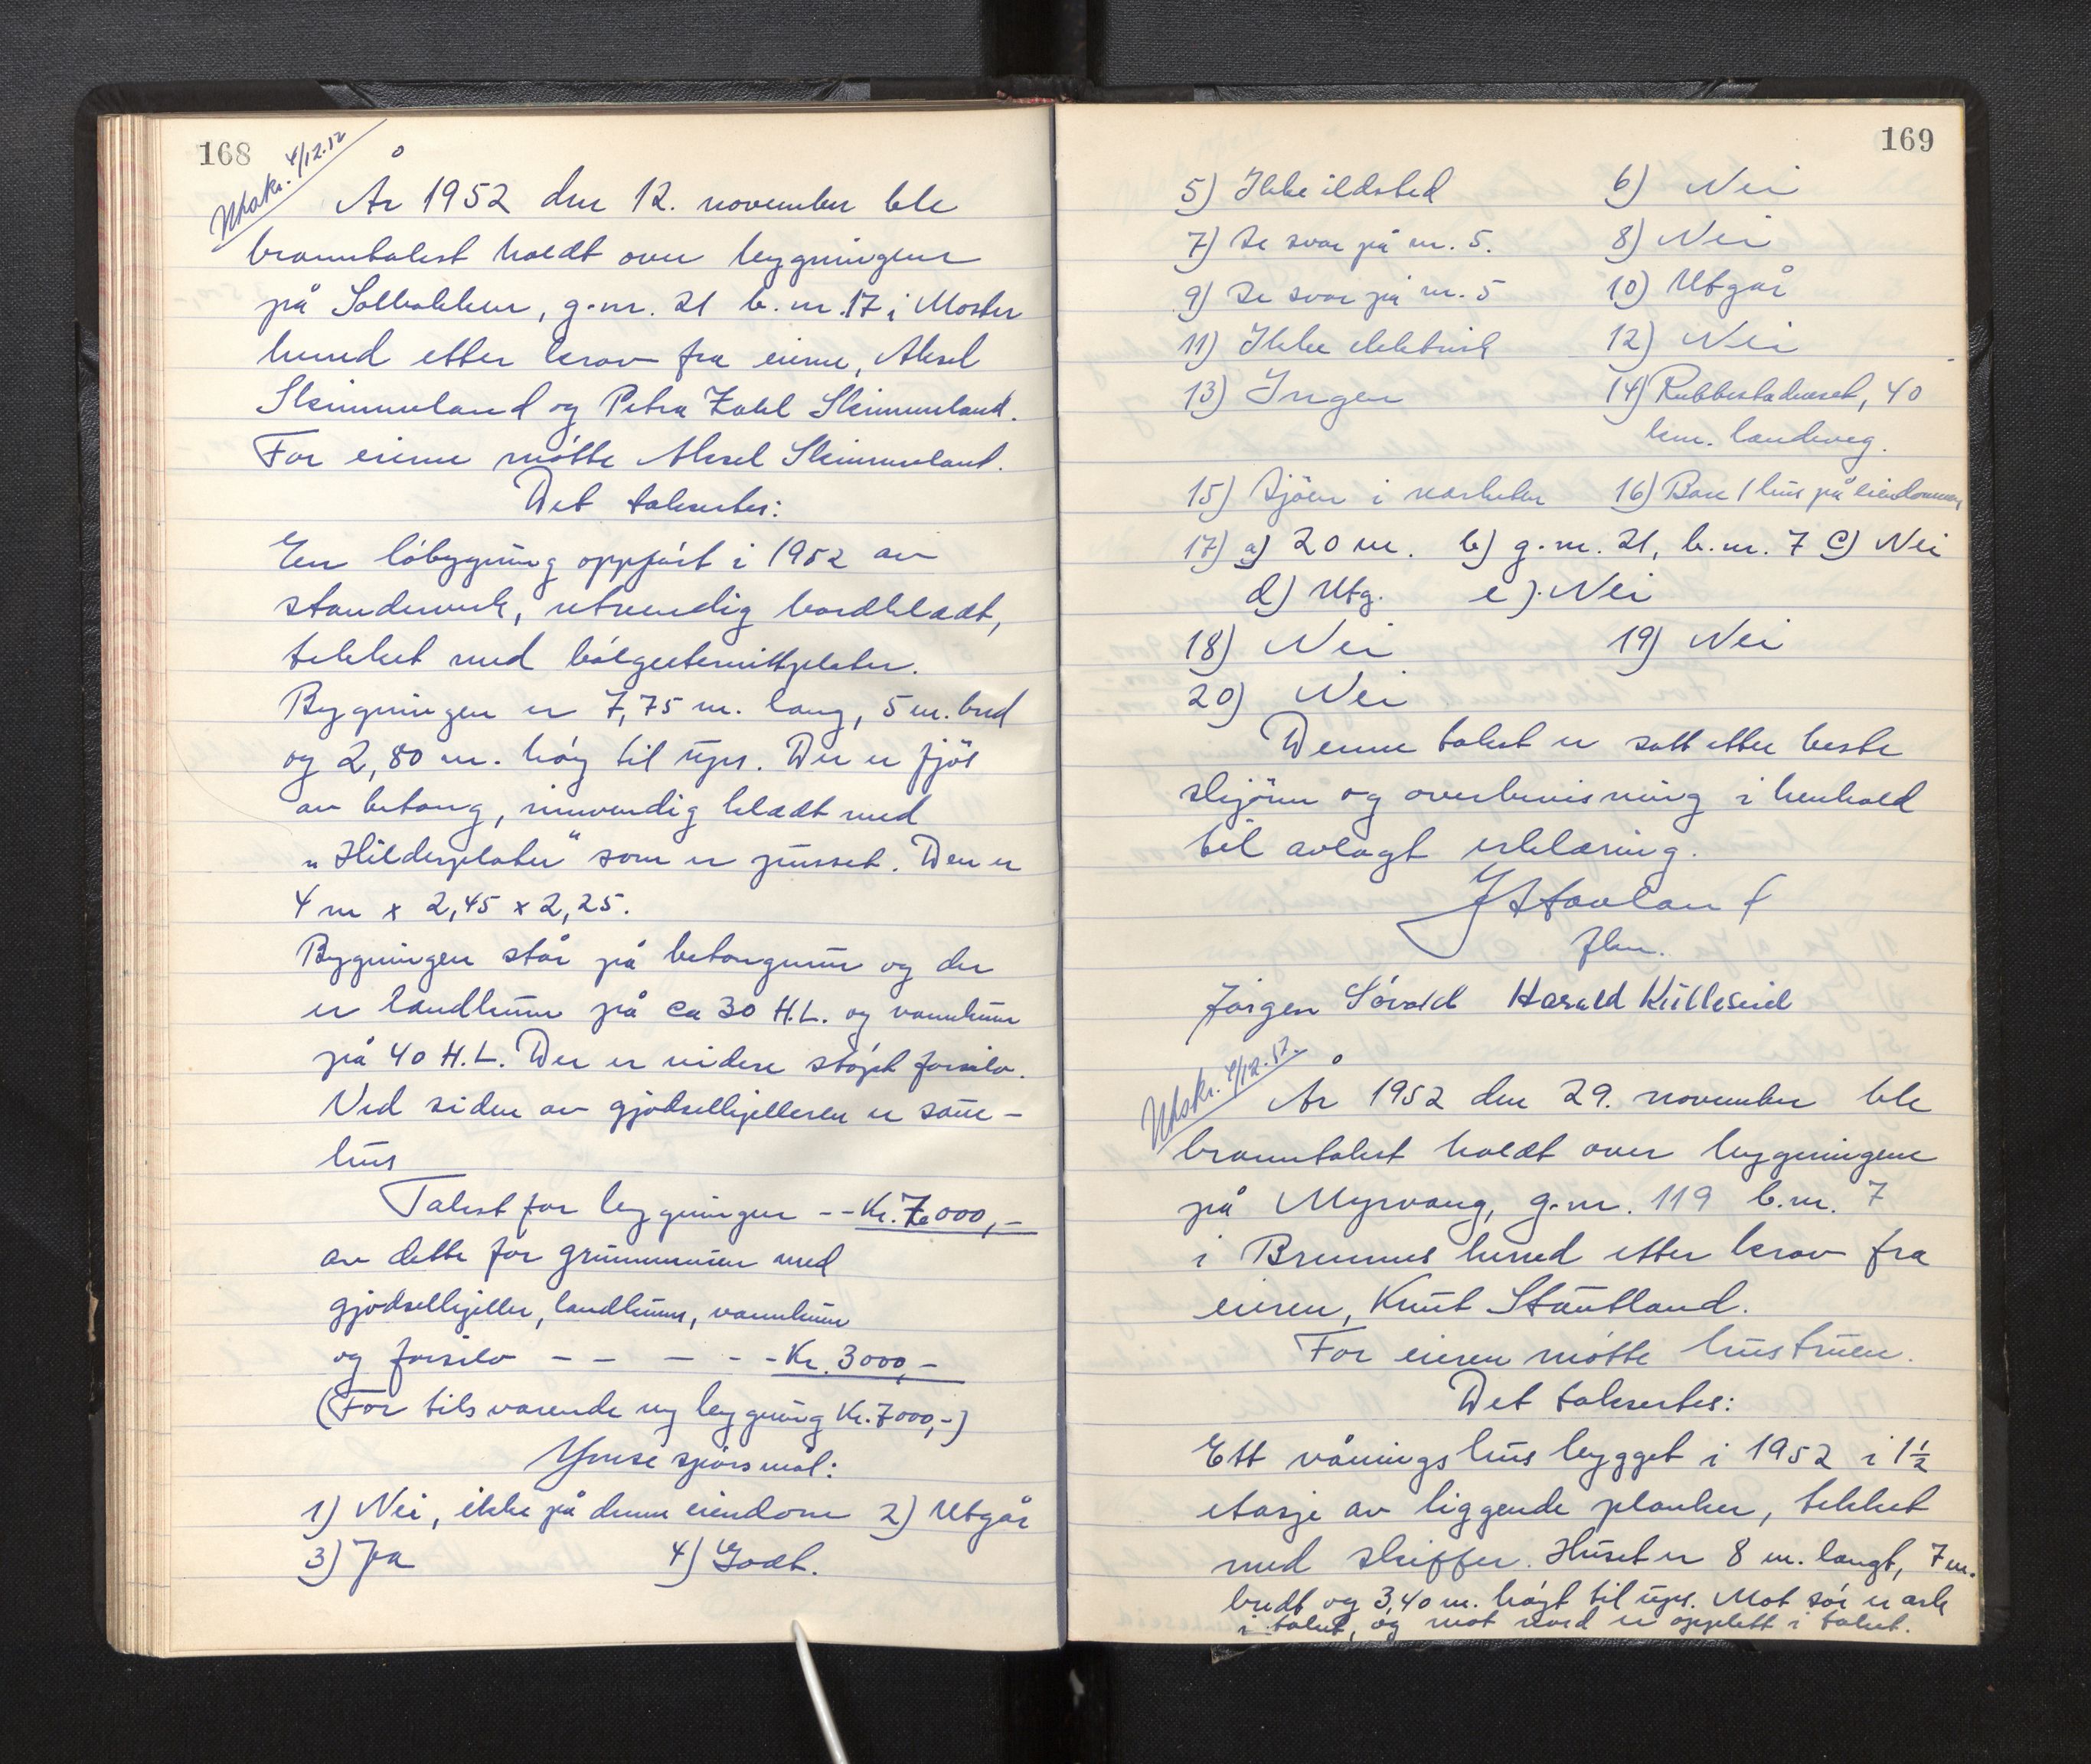 168
Utskr. 4/12.52
År 1952 den 12. november ble
branntakst holdt over bygningene
på Solbakken, g.nr. 21 b.nr. 17 i Moster
herred etter krav fra eierne, Aksel
Skimmeland og Petra Zahl Skimmeland.
For eierne møtte Aksel Skimmeland.
Det taksertes:
En løbygning oppført i 1952 av
standerverk, utvendig bordkledt,
tekket med bølgeeternittplater.
Bygningen er 7,75 m. lang, 5 m. bred
og 2,80 m. høy til ups. Der er fjøs
av betong, innvendig kledt med
"Hilderplater" som er pusset. Den er
4 m x 2,45 x 2,25.
Bygningen står på betongmur og der
er landkum på ca 30 H.L. og vannkum
på 40 H.L. Der er videre støpt forsilo.
Ved siden av gjødselkjelleren er saue-
hus
Takst for bygningen -- Kr. 7.000,-
av dette for grunnmuren med
gjødselkjeller, landkum, vannkum
og forsilo - - - - - Kr. 3000,-
(For tilsvarende ny bygning Kr. 7000,-)
Ymse spørsmål:
1) Nei, ikke på denne eiendom 2) Utgår
3) Ja 4) Godt.
169
5) Ikke ildsted 6) Nei
7) Se svar på nr. 5. 8) Nei
9) Se svar på nr. 5 10) Utgår
11) Ikke elektrisk 12) Nei
13) Ingen 14) Rubbestadneset, 40
km. landeveg.
15) Sjøen i nærheten 16) Bare 1 hus på eiendommen
17) a) 20 m. b) g.nr. 21, b.nr. 7 c) Nei
d) Utg. e) Nei
18) Nei 19) Nei
20) Nei
Denne takst er satt etter beste
skjønn og overbevisning i henhold
til avlagt erklæring.
J Stavland
flm.
Jørgen Søvold Harald Kulleseid
Utskr. 4/12.52.
År 1952 den 29. november ble
branntakst holdt over bygningene
på Myrvang, g.nr. 119 b.nr. 7
i Bremnes herred etter krav fra
eieren, Knut Stautland.
For eieren møtte hustruen.
Det taksertes:
Ett våningshus bygget i 1952 i 1½
etasje av liggende planker, tekket
med skiffer. Huset er 8 m. langt, 7 m.
bredt og 3,40 m. høgt til ups. Mot sør er ark
i taket, og mot nord er opplett i taket.